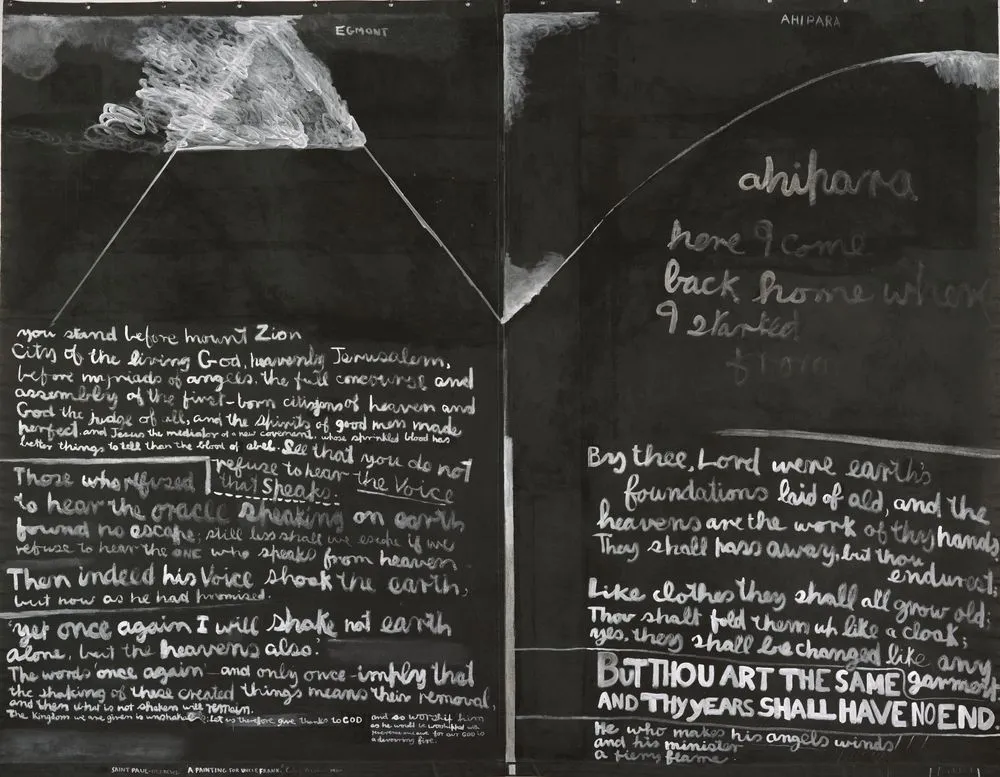 EGMONT
you stand before mount Zion
City of the living God, heavenly Jerusalem,
before myriads of angels, the full concourse and
assembly of the first-born citizens of heaven and
God the judge of all, and the spirits of good men made
perfect, and Jesus the mediator of a new covenant, whose sprinkled blood has
better things to tell than the blood of abel. See that you do not
refuse to hear the Voice
that Speaks.
Those who refused
to hear the oracle speaking on earth
found no escape; still less shall we escape if we
refuse to hear the ONE who speaks from heaven.
Then indeed his Voice shook the earth,
but now as he had promised.
'yet once again I will shake not earth
alone, but the heavens also.'
The words 'once again' - and only once - imply that
the shaking of these created things means their removal,
and then what is not shaken will remain.
The Kingdom we are given is unshakable; let us therefore give thanks to GOD
and so worship him
as he would be worshipped with
reverence and awe for our GOD is
a devouring fire.
SAINT PAUL: HEBREWS 'A PAINTING FOR UNCLE FRANK.'
AHIPARA
ahipara
here I come
back home where
I started
from
By thee, Lord were earth's
foundations laid of old, and the
heavens are the work of thy hands.
They shall pass away, but thou
endurest.
Like clothes they shall all grow old;
Thou shalt fold them up like a cloak;
yes, they shall be changed like any
garment
BUT THOU ART THE SAME
AND THY YEARS SHALL HAVE NO END.
He who makes his angels winds
and his minister
a fiery flame